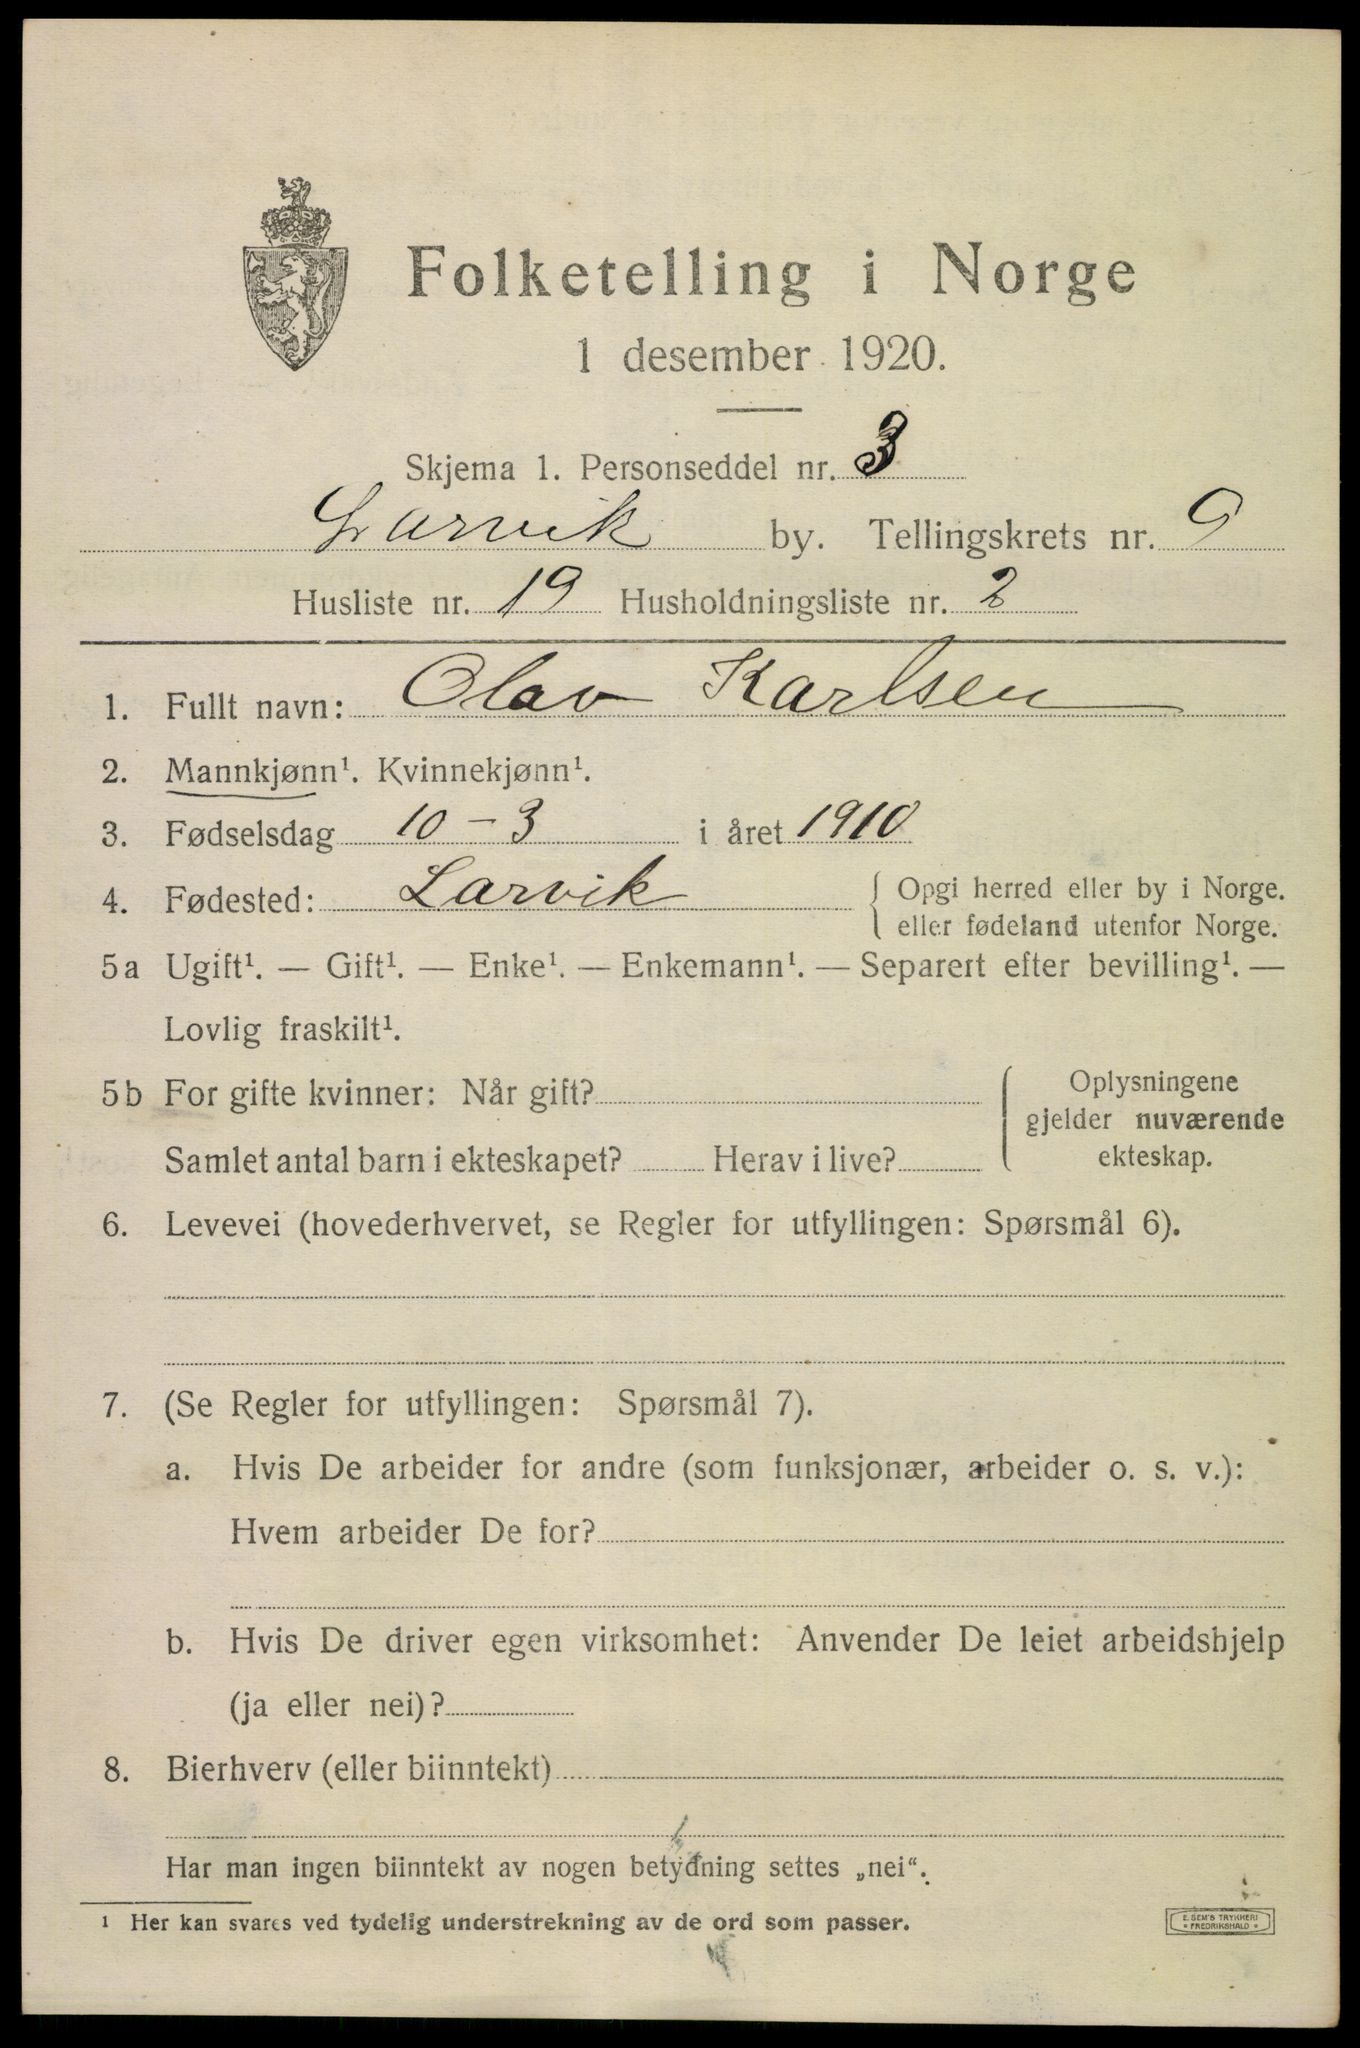 Folketelling i Norge
1 desember 1920.
Skjema 1. Personseddel nr. 3
Larvik by. Tellingskrets nr. 9
Husliste nr. 19 Husholdningsliste nr. 2
1. Fullt navn: Olav Karlsen
2. Mannkjønn¹. Kvinnekjønn¹.
3. Fødselsdag 10-3 i året 1910
4. Fødested: Larvik { Opgi herred eller by i Norge.
eller fødeland utenfor Norge.
5a Ugift¹. — Gift¹. — Enke¹. — Enkemann¹. — Separert efter bevilling¹. —
Lovlig fraskilt¹.
5b For gifte kvinner: Når gift?
Samlet antal barn i ekteskapet? Herav i live?
Oplysningene
gjelder nuværende
ekteskap.
6. Levevei (hovederhvervet, se Regler for utfyllingen: Spørsmål 6).
7. (Se Regler for utfyllingen: Spørsmål 7).
a. Hvis De arbeider for andre (som funksjonær, arbeider o. s. v.):
Hvem arbeider De for?
b. Hvis De driver egen virksomhet: Anvender De leiet arbeidshjelp
(ja eller nei)?
8. Bierhverv (eller biinntekt)
Har man ingen biinntekt av nogen betydning settes „nei“.
¹ Her kan svares ved tydelig understrekning av de ord som passer.
E. SEM'S TRYKKERI
* FREDRIKSHALD *